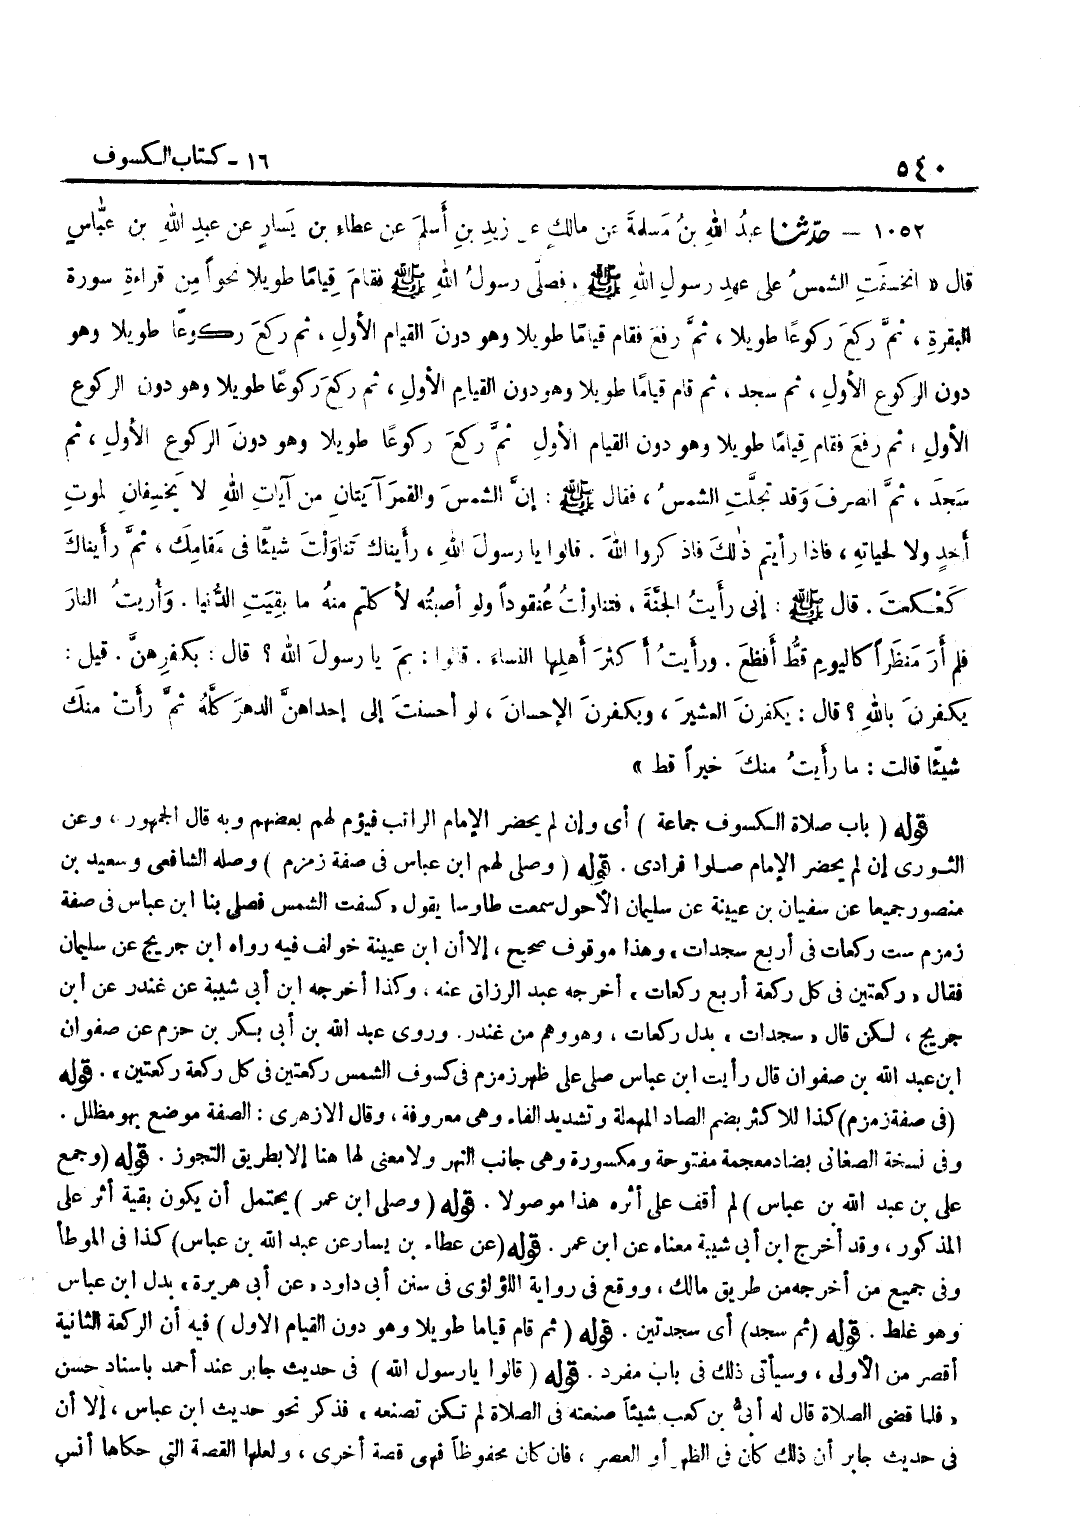 ٥٤٠
١٦ - كتاب الكسوف
١٠٥٢ - حدّثنا عبدُ اللهِ بنُ مَسلمةَ عن مالكٍ عن زيدِ بنِ أَسلمَ عن عطاءِ بن يَسارٍ عن عبدِ اللهِ بن عبّاسٍ
قال « انخسفَتِ الشمسُ على عهدِ رسولِ اللهِ ﷺ ، فصلَّى رسولُ اللهِ ﷺ فقامَ قِيامًا طويلا نحواً مِن قراءةِ سورة
البقرةِ ، ثمَّ ركعَ ركوعًا طويلا ، ثمَّ رفعَ فقام قيامًا طويلا وهو دونَ القيام الأولِ ، ثم ركعَ ركوعًا طويلا وهو
دون الركوع الأولِ ، ثم سجد ، ثم قام قيامًا طويلا وهو دون القيامِ الأولِ ، ثم ركعَ ركوعًا طويلا وهو دون الركوع
الأولِ ، ثم رفعَ فقام قِيامًا طويلا وهو دون القيام الأولِ ثمَّ ركعَ ركوعًا طويلا وهو دونَ الركوع الأولِ ، ثم
سَجدَ ، ثمَّ انصرفَ وَقد تجلَّتِ الشمسُ ، فقال ﷺ : إنَّ الشمسَ والقمرَ آيَتانِ من آياتِ اللهِ لا يَخسِفانِ لموتِ
أَحدٍ ولا لحياتهِ ، فاذا رأيتم ذٰلكَ فاذكروا اللهَ . قالوا يا رسولَ اللهِ ، رأيناك تَناوَلْتَ شيئًا في مَقامِكَ ، ثمَّ رأيناكَ
كَعْكعتَ . قال ﷺ : إنى رأَيتُ الجنَّةَ ، فتناولتُ عُنقوداً ولو أصبتُه لأكلتم منهُ ما بقِيَتِ الدُّنيا . وَأُريتُ النارَ
فلم أرَ مَنظَراً كاليومِ قطُّ أفظعَ . ورأَيتُ أكثرَ أَهلِها النساءَ . قالوا : بمَ يا رسولَ الله ؟ قال : بكفرِهنَّ . قيل :
يكفرنَ باللهِ ؟ قال : يكفرنَ العشيرَ ، ويكفرنَ الإحسانَ ، لو أحسنتَ إلى إحداهنَّ الدهرَ كلَّهُ ثمَّ رأَتْ منكَ
شيئًا قالت : ما رأَيتُ منكَ خيراً قط »
قوله ( باب صلاة الكسوف جماعة ) أى وإن لم يحضر الإمام الراتب فيؤم لهم بعضهم وبه قال الجمهور ، وعن
الثورى إن لم يحضر الإمام صلوا فرادى . قوله ( وصلى لهم ابن عباس فى صفة زمزم ) وصله الشافعى وسعيد بن
منصور جميعا عن سفيان بن عيينة عن سليمان الأحول سمعت طاوسا يقول « كسفت الشمس فصلى بنا ابن عباس فى صفة
زمزم ست ركعات فى أربع سجدات » وهذا موقوف صحيح ، إلا أن ابن عيينة خولف فيه رواه ابن جريج عن سليمان
فقال « ركعتين فى كل ركعة أربع ركعات » أخرجه عبد الرزاق عنه ، وكذا أخرجه ابن أبى شيبة عن غندر عن ابن
جريج ، لكن قال « سجدات » بدل ركعات ، وهو وهم من غندر. وروى عبد الله بن أبى بكر بن حزم عن صفوان
ابن عبد الله بن صفوان قال رأيت ابن عباس صلى على ظهر زمزم فى كسوف الشمس ركعتين فى كل ركعة ركعتين » . قوله
(فى صفة زمزم) كذا للاكثر بضم الصاد المهملة وتشديد الفاء وهى معروفة ، وقال الازهرى : الصفة موضع بهو مظلل .
وفى نسخة الصغانى بضاد معجمة مفتوحة ومكسورة وهى جانب النهر ولا معنى لها هنا إلا بطريق التجوز . قوله (وجمع
على بن عبد الله بن عباس ) لم أقف على أثره هذا موصولا . قوله ( وصلى ابن عمر ) يحتمل أن يكون بقية أثر على
المذكور ، وقد أخرج ابن أبى شيبة معناه عن ابن عمر . قوله (عن عطاء بن يسار عن عبد الله بن عباس) كذا فى الموطأ
وفى جميع من أخرجه من طريق مالك ، ووقع فى رواية اللؤلؤى فى سنن أبى داود « عن أبى هريرة » بدل ابن عباس
وهو غلط . قوله (ثم سجد) أى سجدتين . قوله ( ثم قام قياما طويلا وهو دون القيام الاول ) فيه أن الركعة الثانية
أقصر من الأولى ، وسيأتى ذلك فى باب مفرد . قوله ( قالوا يا رسول الله ) فى حديث جابر عند أحمد باسناد حسن
« فلما قضى الصلاة قال له أبىّ بن كعب شيئاً صنعته فى الصلاة لم تكن تصنعه » فذكر نحو حديث ابن عباس ، إلا أن
فى حديث جابر أن ذلك كان فى الظهر أو العصر ، فان كان محفوظاً فهى قصة أخرى ، ولعلها القصة التى حكاها أنس